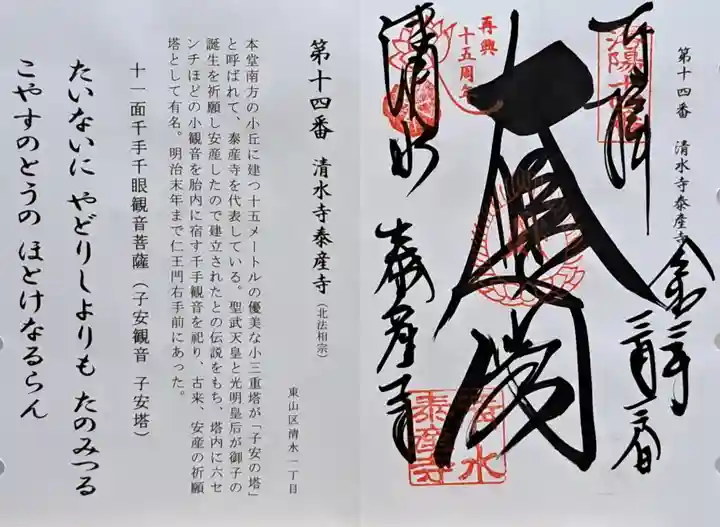 第十四番 清水寺泰産寺
奉拝
令和三年三月二日
大悲閣
清水
泰産寺
再興
十五周年
清水
泰産寺
第十四番 清水寺泰産寺(北法相宗)
東山区清水一丁目
本堂南方の小丘に建つ十五メートルの優美な小三重塔が「子安の塔」
と呼ばれて、泰産寺を代表している。聖武天皇と光明皇后が御子の
誕生を祈願し安産したので建立されたとの伝説をもち、塔内に六セ
ンチほどの小観音を胎内に宿す千手観音を祀り、古来、安産の祈願
塔として有名。明治末年まで仁王門右手前にあった。
十一面千手千眼観音菩薩(子安観音 子安塔)
たいないに やどりしよりも たのみつる
こやすのとうの ほとけなるらん